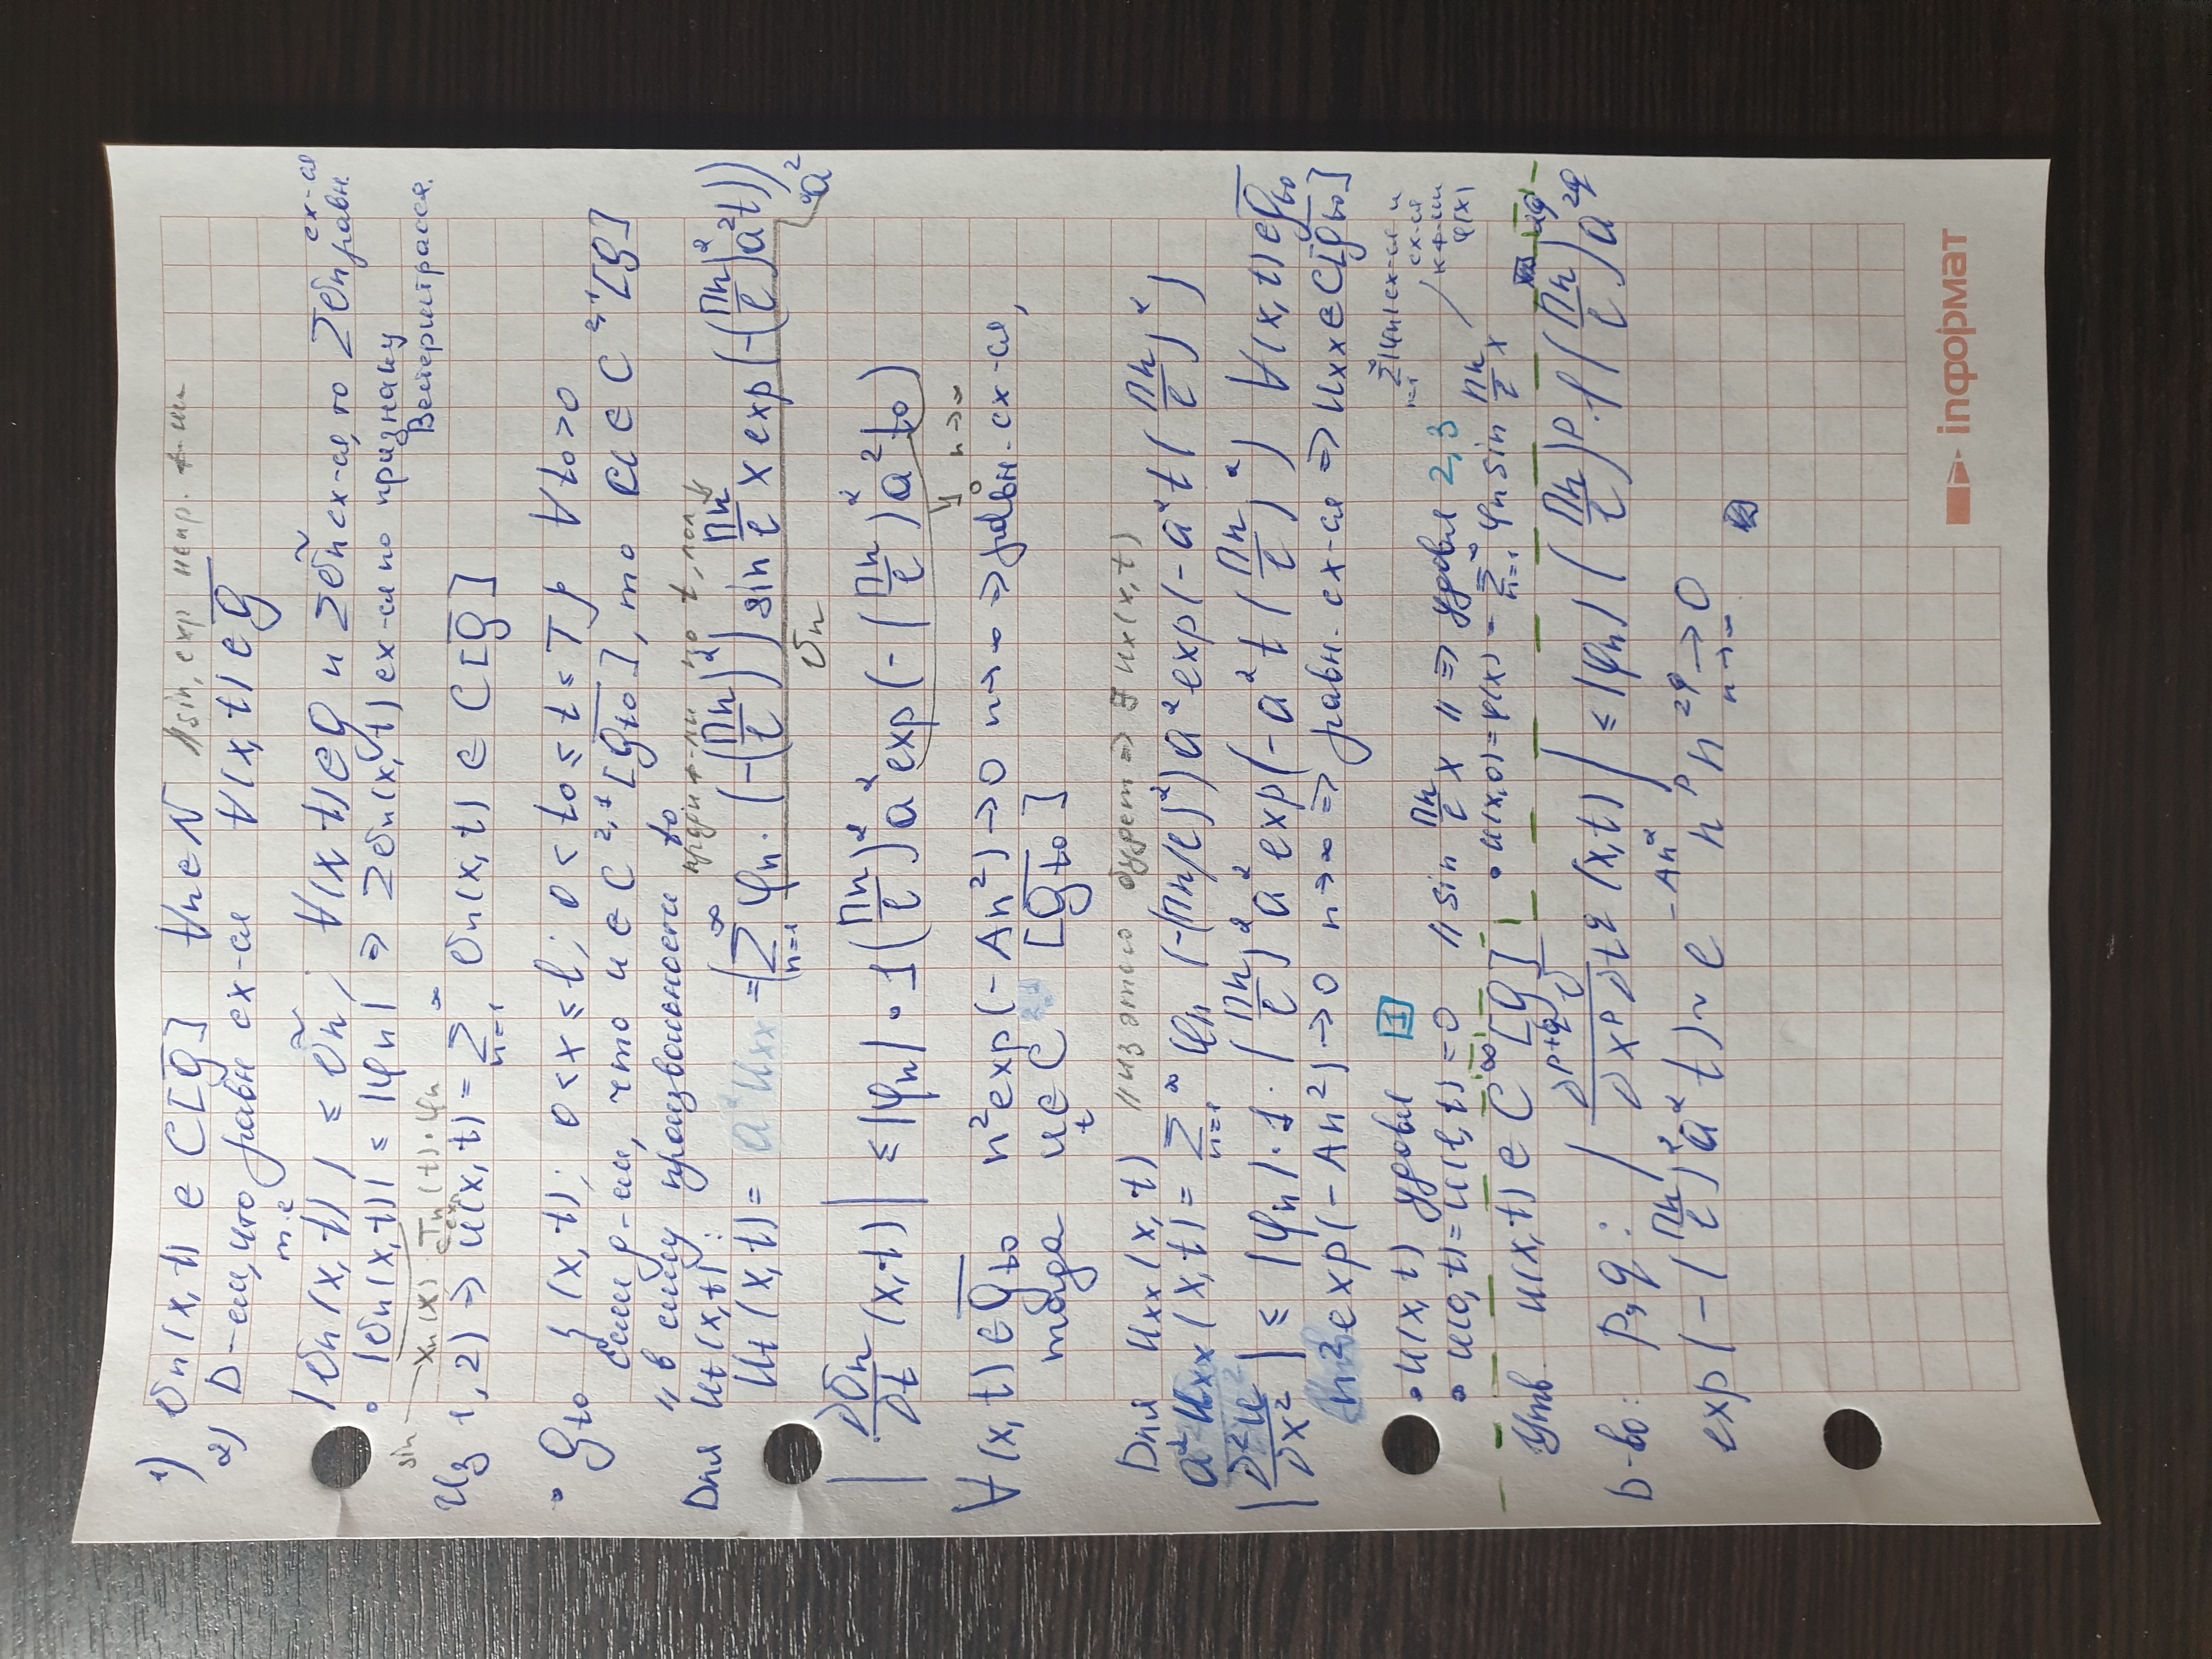 1) υn(x,t) ∈ C[Q̄] ∀n∈N //sin, exp непр. ф-ии
2) D-ем, что равн сх-ся ∀(x,t)∈Q̄
т.е
|υn(x,t)| ≤ υ̃n, ∀(x,t)∈Q и Συ̃n сх-ся, то Συn равн. сх-ся
• |υn(x,t)| ≤ |φn| ⇒ Συn(x,t) сх-ся по признаку Вейерштрасса.
sin Xn(x) Tn(t)·φn
exp
Из 1,2) ⇒ u(x,t) = Σ_{n=1}^∞ υn(x,t) ∈ C[Q̄]
• Q_{t0} {(x,t): 0<x≤l; 0<t0≤t≤T} ∀t0>0
Если р-ем, что u∈C^{2,1}[Q̄_{t0}], то u∈C^{2,1}[Q]
"в силу произвольности t0
Для ut(x,t): продиф-ли по t, пол
ut(x,t) = a²uxx = (Σ_{n=1}^∞ φn·(-(Пn/l)²) sin Пn/l x exp(-(Пn/l)²a²t)) a²
υn
|∂υn/∂t (x,t)| ≤ |φn|·1(Пn/l)²a² exp(-(Пn/l)²a²t0)
↓ 0 n→∞
∀(x,t)∈Q̄_{t0} n²exp(-An²)→0 n→∞ ⇒ равн. сх-ся,
тогда ut∈C [Q̄_{t0}]
Для uxx(x,t) //из этого будет ⇒ ∃ ux(x,t)
a²uxx(x,t) = Σ_{n=1}^∞ φn (-(Пn/l)²)a² exp(-a²t(Пn/l)²)
|∂²u/∂x²| ≤ |φn|·1·(Пn/l)²a² exp(-a²t(Пn/l)²) ∀(x,t)∈Q̄_{t0}
n²exp(-An²)→0 n→∞ ⇒ равн. сх-ся ⇒ uxx∈C[Q̄_{t0}]
• u(x,t) удовл 1
• u(0,t)=u(l,t)=0 //sin Пn/l x // ⇒ удовл 2,3
Σ_{n=1}^∞|φn| сх-ся и сх-ся к ф-ии φ(x)
• u(x,0)=φ(x)= Σ_{n=1}^∞ φn sin Пn/l x
Утв. u(x,t)∈C^∞[Q]
D-во: p,q: |∂^{p+q}υ/∂x^p∂t^q (x,t)| ≤ |φn|(Пn/l)^p·(Пn/l)^{2q}a^{2q}
exp(-(Пn/l)²a²t) ~ e^{-An²} n^p n^{2q} → 0 n→∞
inформат